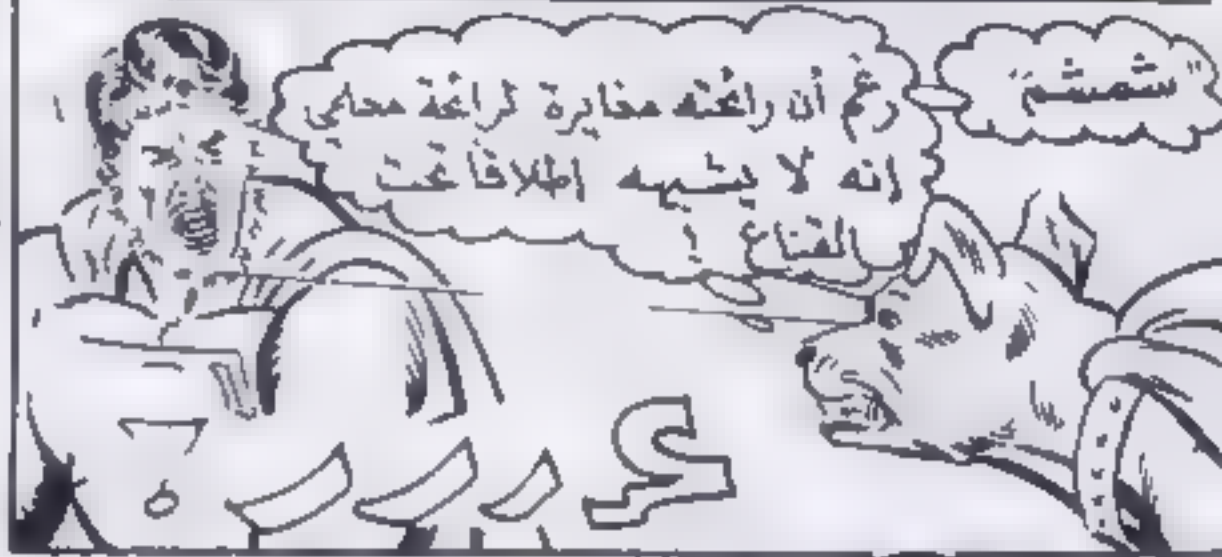 "شمشم"
رغم أن رائحته مغايرة لرائحة معلمي
إنه لا يشبهه إطلاقا تحت
القناع !